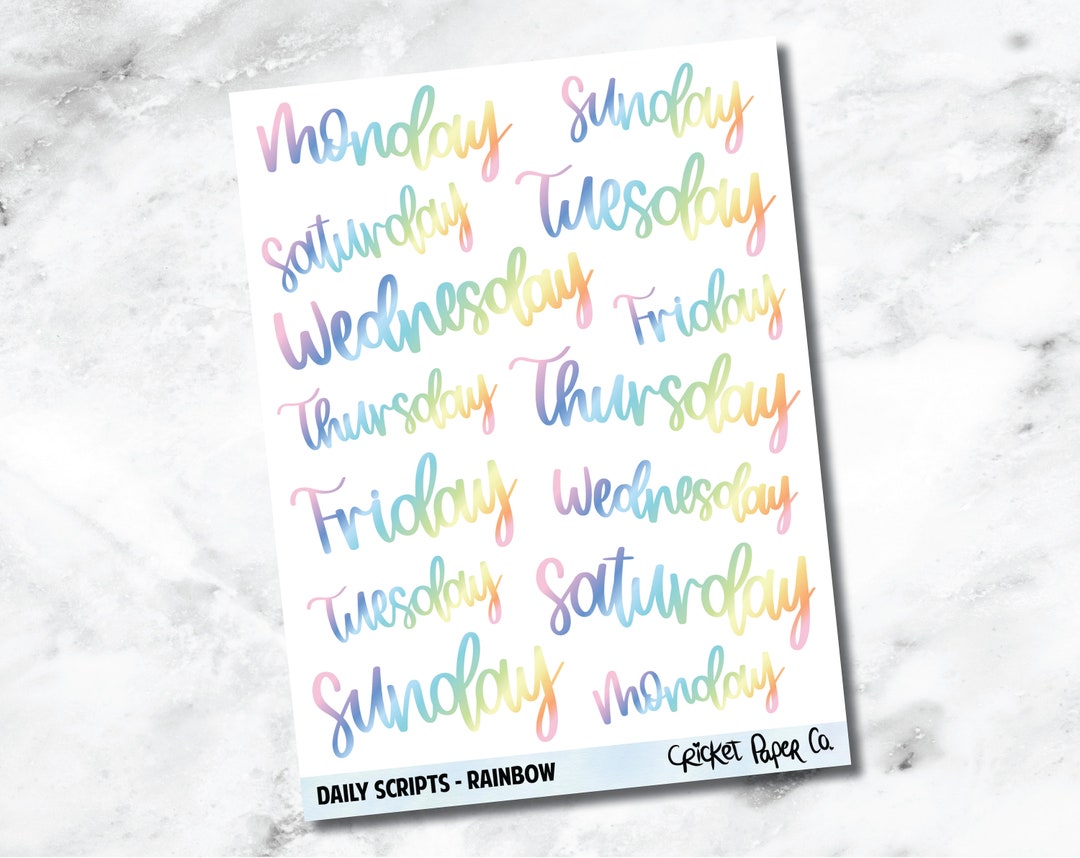 Monday Sunday
Saturday Tuesday
Wednesday Friday
Thursday Thursday
Friday Wednesday
Tuesday Saturday
Sunday Monday
DAILY SCRIPTS - RAINBOW CRICKET PAPER CO.